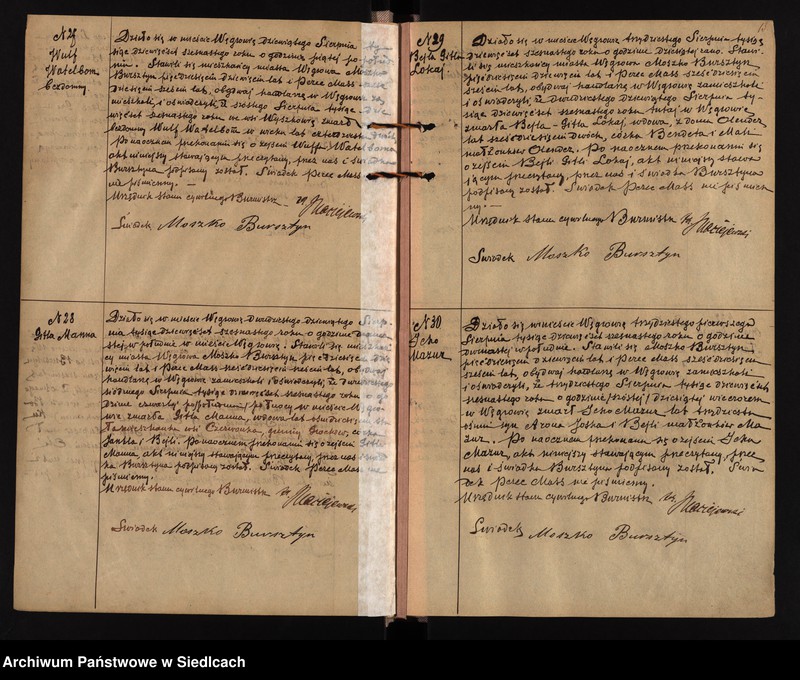 N 27
Wulf
Watelbom
bezdomny.
Działo się w mieście Węgrowie dziewiątego Sierpnia ty-
siąc dziewięćset szesnastego roku o godzinie piątej po połud-
niu. Stawili się mieszkańcy miasta Węgrowa Moszko
Bursztyn pięćdziesięciu dziewięciu lat i Perec Mass
lat, obydwaj handlarze w Węgrowie za-
mieszkali i oświadczyli, że Sierpnia tysiąc dzie-
więćset szesnastego roku we wsi Wyszków zmarł
bezdomny Wulf Watelbom w wieku lat
Po naocznem przekonaniu się o zejściu Wulfa Watelboma
akt niniejszy stawającym przeczytany, przez nas i świadka
Bursztyna podpisany został. Świadek Perec Mass
nie piśmienny. —
Urzędnik stanu cywilnego Burmistrz Maciejewski
Świadek Moszko Bursztyn
N 28
Gitla Manna
Działo się w mieście Węgrowie dwudziestego dziewiątego Sierp-
nia tysiąc dziewięćset szesnastego roku o godzinie
w południe w mieście Węgrowie. Stawili się miesz
cy miasta Węgrowa Moszko Bursztyn pięćdziesięciu dzie
więciu lat i Perec Mass sześćdziesięciu sześciu lat, obydwaj
handlarze w Węgrowie zamieszkali i oświadczyli, że dwudziestego
siódmego Sierpnia tysiąc dziewięćset szesnastego roku o go-
dzinie czwartej po północy w mieście Węgro-
wie zmarła Gitla Manna, wdowa lat
mieszkanka wsi Czerwonka, gminy córka
Jankla i Bejli. Po naocznem przekonaniu się o zejściu Gitli
Manna, akt niniejszy stawającym przeczytany, przez nas i świad
ka Bursztyna podpisany został. Świadek Perec Mass nie
piśmienny.
Urzędnik stanu cywilnego Burmistrz Maciejewski
Świadek Moszko Bursztyn
N 29
Bejla Gitla
Lokaj.
Działo się w mieście Węgrowie trzydziestego Sierpnia tysiąc
dziewięćset szesnastego roku o godzinie dziesiątej rano. Stawi-
li się mieszkańcy miasta Węgrowa Moszko Bursztyn
pięćdziesięciu dziewięciu lat i Perec Mass sześćdziesięciu
sześciu lat, obydwaj handlarze w Węgrowie zamieszkali
i oświadczyli, że dwudziestego dziewiątego Sierpnia ty-
siąc dziewięćset szesnastego roku tutaj w Węgrowie
zmarła Bejla-Gitla Lokaj, wdowa, z domu Olender
lat sześćdziesięciu dwóch, córka Bendeta i
małżonków Olender. Po naocznem przekonaniu się
o zejściu Bejli Gitli Lokaj, akt niniejszy stawa
jącym przeczytany, przez nas i świadka Bursztyna
podpisany został. Świadek Perec Mass nie piśmien
ny. —
Urzędnik stanu cywilnego Burmistrz Maciejewski
Świadek Moszko Bursztyn
N 30
Icko
Mazur
Działo się w mieście Węgrowie trzydziestego pierwszego
Sierpnia tysiąc dziewięćset szesnastego roku o godzinie
dwunastej w południe. Stawili się Moszko Bursztyn
pięćdziesięciu dziewięciu lat i Perec Mass sześćdziesięciu
sześciu lat, obydwaj handlarze w Węgrowie zamieszkali
i oświadczyli, że trzydziestego Sierpnia tysiąc dziewięćset
szesnastego roku o godzinie dziesiątej wieczorem
w Węgrowie zmarł Icko Mazur lat trzydziestu
ośmiu syn Arona Joska i Bejli małżonków Ma-
zur. Po naocznem przekonaniu się o zejściu Icka
Mazur, akt niniejszy stawającym przeczytany, przez
nas i świadka Bursztyna podpisany został. Świa
dek Perec Mass nie piśmienny.
Urzędnik stanu cywilnego Burmistrz Maciejewski
Świadek Moszko Bursztyn
Archiwum Państwowe w Siedlcach